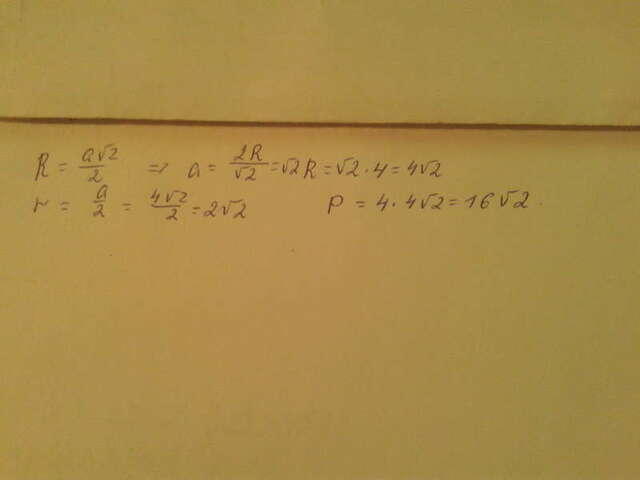 R = a√2/2 => a = 2R/√2 = √2 R = √2 · 4 = 4√2
r = a/2 = 4√2/2 = 2√2 P = 4 · 4√2 = 16√2.